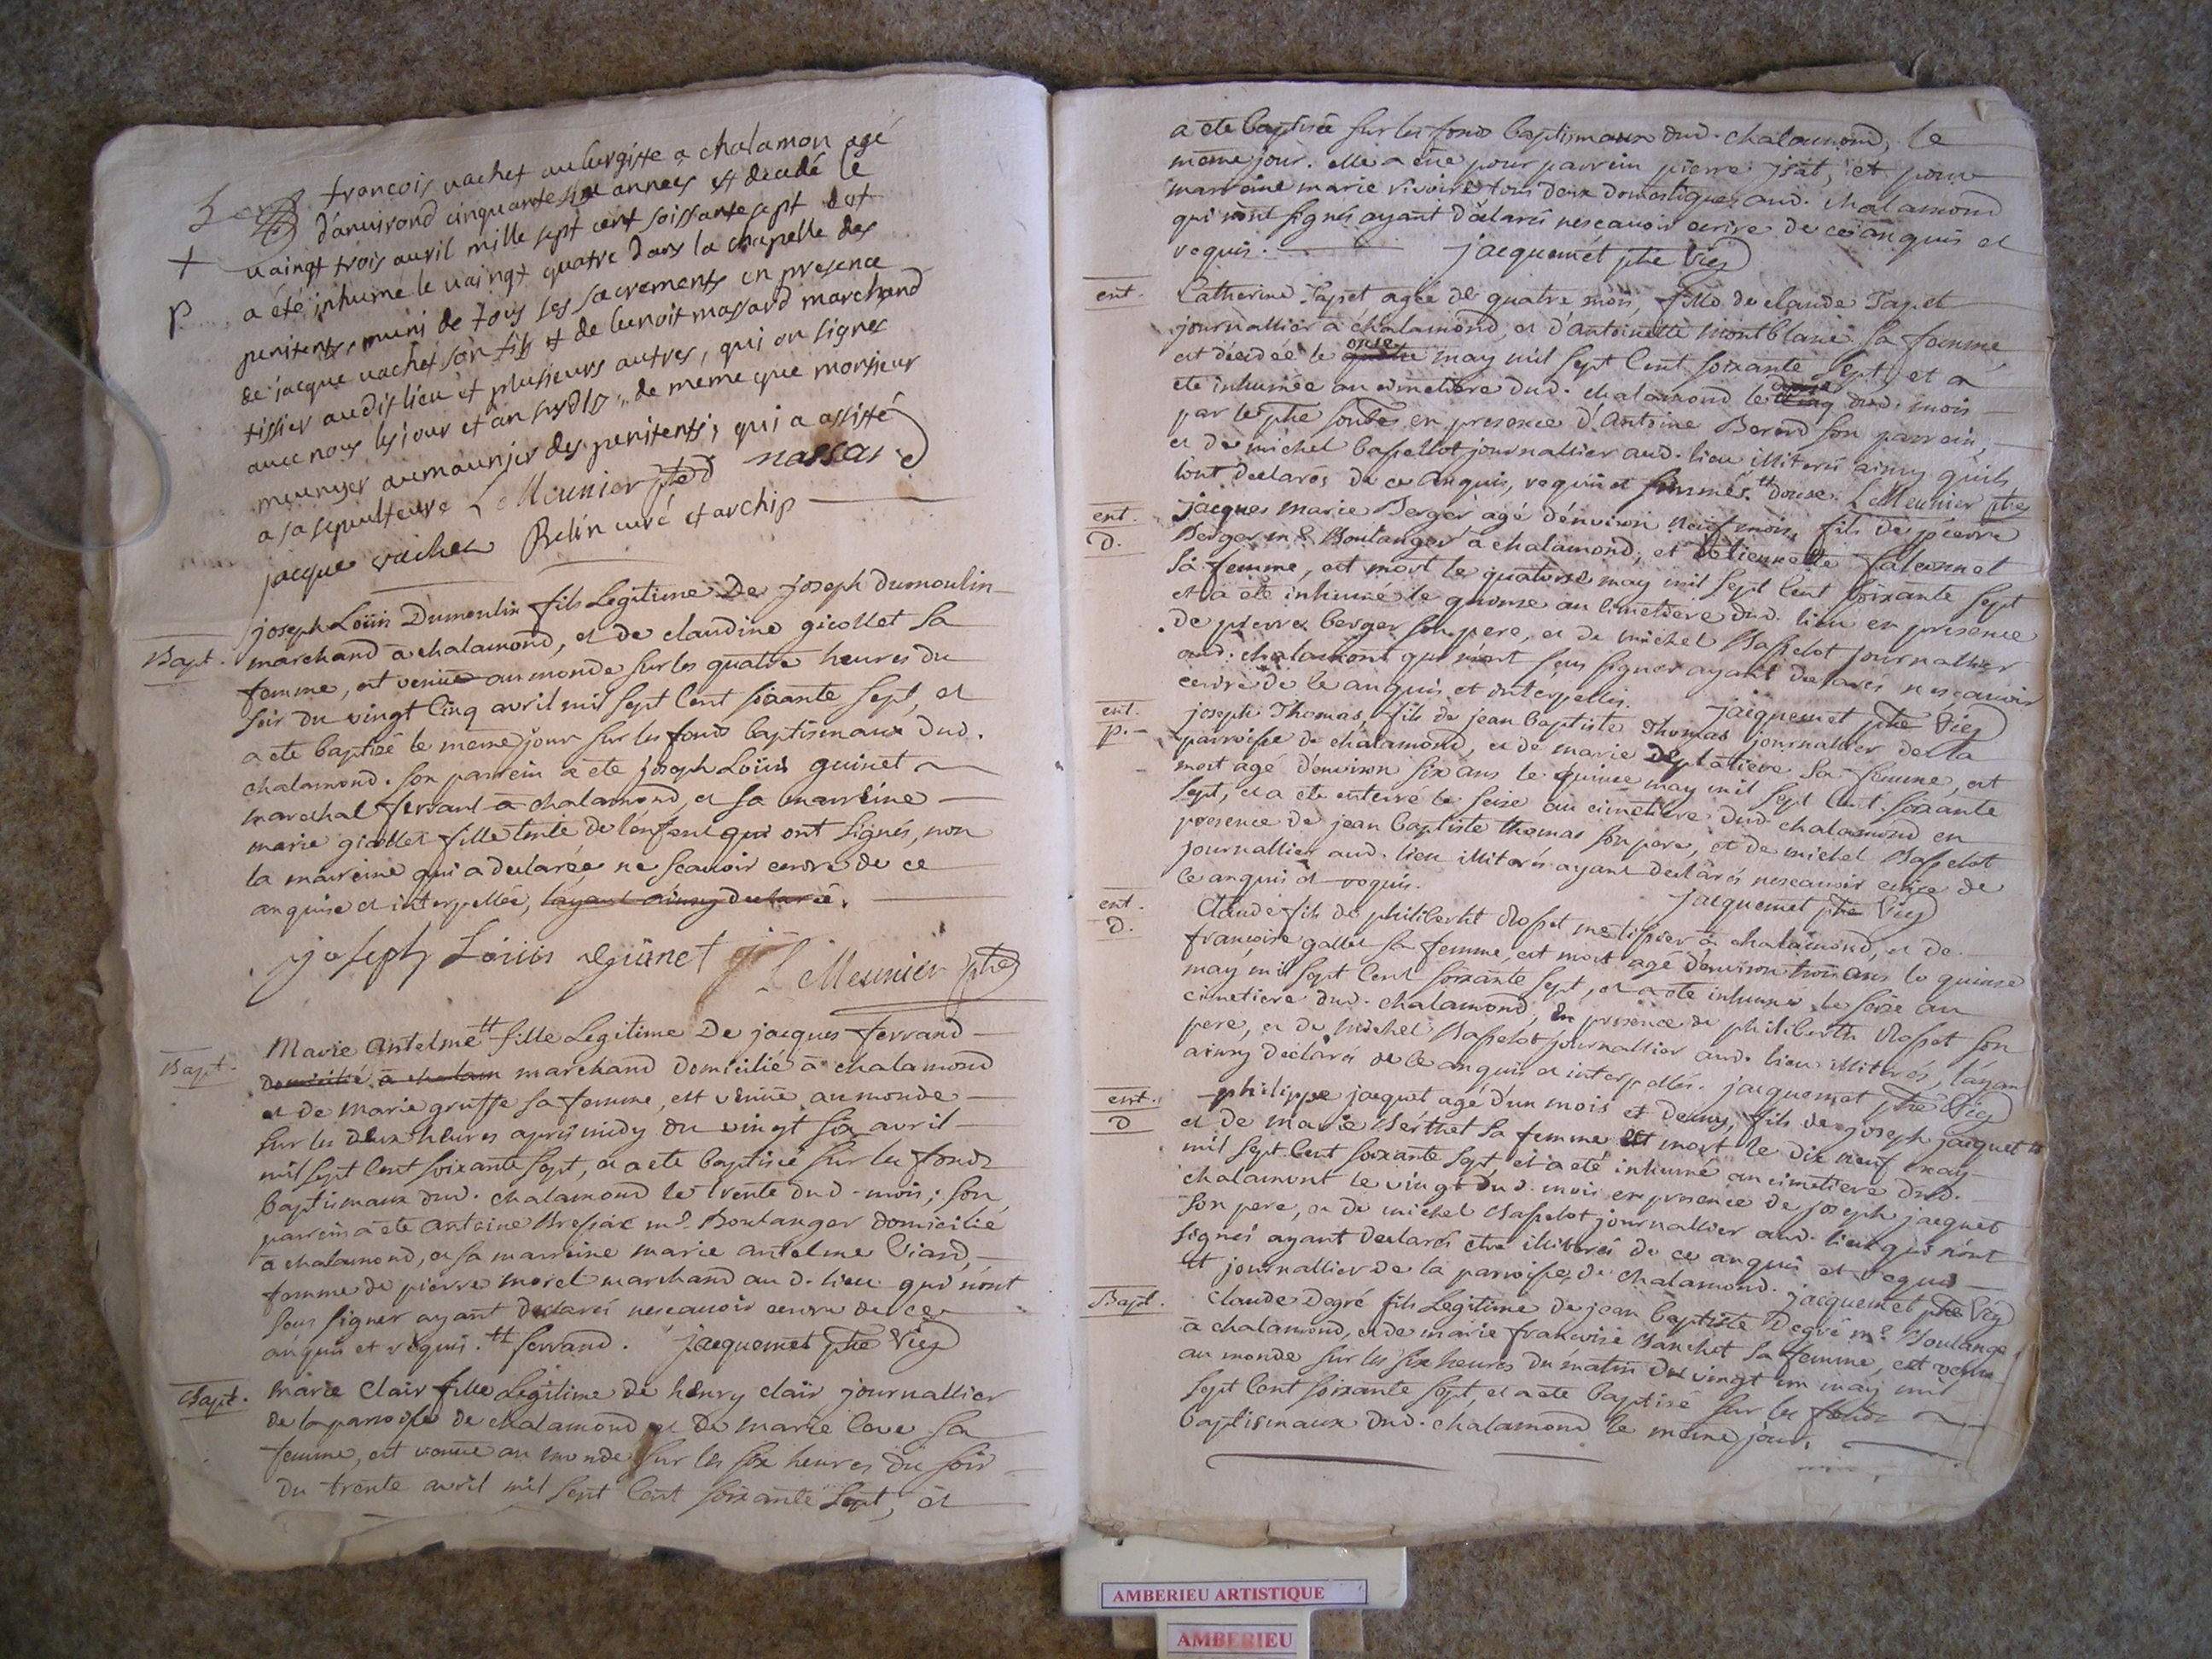 francois vachet aubergiste a chalamon agé
d'anvirond cinquante annees et decedé le
vaingt trois avril mille sept cent soissante sept et
a été inhumé le vaingt quatre dans la chapelle des
penitents, muni de tous ses sacrements en presence
de jacque vachet son fils et de benoit massard marchand
tissier audis lieu et plusieurs autres, qui on signes
avec nous les jour et an susdis, de meme que monsieur
meunier aumaunier des penitents, qui a assisté
a sa sepulteure L Meunier ptre massard
jacque vachet Belin curé et archip
Bapt. joseph Loüis Dumoulin fils Legitime De joseph dumoulin
marchand a chalamond, et de claudine gicollet sa
femme, est venüe au monde sur les quatre heures du
soir du vingt cinq avril mil sept cent soixante sept, et
a ete baptisé le meme jour sur les fonds baptismaux dud.
chalamond. son parrein a ete joseph Loüis guinet
marechal ferrant a chalamond, et sa marreine
marie gicollet fille tente de l'enfant qui ont signés, non
la marreine qui a declarée ne scavoir ecrire de ce
anquise et interpellée, layant ainsy declaré.
joseph Loüis Guinet L Meunier ptre
Bapt. Marie Antelme tt fille Legitime De jacques ferrand
domicilié a chalam marchand domicilié a chalamond
et de Marie gruffe sa femme, est venüe au monde
sur les deux heures apres midy du vingt six avril
mil sept cent soixante sept, et a ete baptisée sur les fonds
baptismaux dud. chalamond le trente dud. mois; son
parrein a ete antoine Bressac md. Boulanger domicilié
a chalamond, et sa marreine marie antelme Viand,
femme de pierre morel marchand aud. lieu qui n'ont
sous signer ayant declarés nescavoir ecrire de ce
anquis et requis. tt ferrand. jacquemet ptre Vic
Bapt. Marie Clair fille Legitime de henry clair journallier
de la parroisse de chalamond et De marie Cave sa
femme, est venüe au monde sur les six heures du soir
du trente avril mil sept cent soixante sept, et
a ete baptisée sur les fonds baptismaux dud. chalamond, le
meme jour. elle a eüe pour parrein pierre jsat, et pour
marreine marie vivoire tous deux domestiques aud. chalamond
qui n'ont signés ayant déclarés nescavoir ecrire de ce anquis et
requis. jacquemet ptre Vic
ent. Catherine Papet agée de quatre mois, fille de claude Papet
journallier a chalamond, et d'antoinette montblanc sa femme
est décédée le onze may mil sept cent soixante sept, et a
ete inhumée au cimetiere dud. chalamond le dud. mois
par le ptre soubs. en presence d'Antoine Berord son parrein,
et de michel Basselot journallier aud. lieu illiterés ainsy quils
l'ont declarés de ce anquis, requis et sommés. tt douze. L Meunier ptre
ent. jacques marie Berger agé d'environ neuf mois, fils de pierre
D. Berger md Boulanger a chalamond, et Etiennette falconnet
sa femme, est mort le quatorze may mil sept cent soixante sept
et a ete inhumé le quinze au cimetiere dud. lieu en presence
de pierre berger son pere, et de michel Basselot journallier
aud. chalamont qui n'ont sçus signer ayant declarés nescavoir
ecrire de ce anquis et interpellés. jacquemet ptre Vic
ent. joseph Thomas, fils de jean baptiste Thomas journallier de la
p. parroisse de chalamond, et de marie Deplatiere sa femme, est
mort agé denviron six ans le quinze may mil sept cent soixante
sept, et a ete enterré le seize au cimetiere dud. chalamond en
presence de jean baptiste thomas son pere, et de michel Basselot
journallier aud. lieu illiterés ayant declarés nescavoir ecrire de
ce anquis et requis. jacquemet ptre Vic
ent. Claude fils de philiberht Rosset md tissier a chalamond, et de
D. françoise gallet sa femme, est mort agé d'environ trois ans le quinze
may mil sept cent soixante sept, et a ete inhumé le seize au
cimetiere dud. chalamond, en presence de philiberth Rosset son
pere, et de michel Basselot journallier aud. lieu illiterés, l'ayant
ainsy declarés de ce anquis et interpellés. jacquemet ptre Vic
ent. philippe jacquet agé d'un mois et demy, fils de joseph jacquet tt
D et de marie Berthet sa femme est mort le dix neuf may
mil sept cent soixante sept, et a eté inhumé au cimetiere dud.
chalamont le vingt dud. mois en presence de joseph jacquet
son pere, et de michel Basselot journallier aud. lieu qui n'ont
signés ayant declarés etre illiterés de ce anquis et requis
tt journallier de la parroisse de chalamond. jacquemet ptre Vic
Bapt. Claude Degré fils Legitime de jean baptiste Degré md. Boulange
a chalamond, et de marie francoise Banchet sa femme, est venu
au monde sur les six heures du matin du vingt un may mil
sept cent soixante sept, et a ete baptisé sur les fonds
baptismaux dud. chalamond le meme jour.
AMBERIEU ARTISTIQUE
AMBERIEU